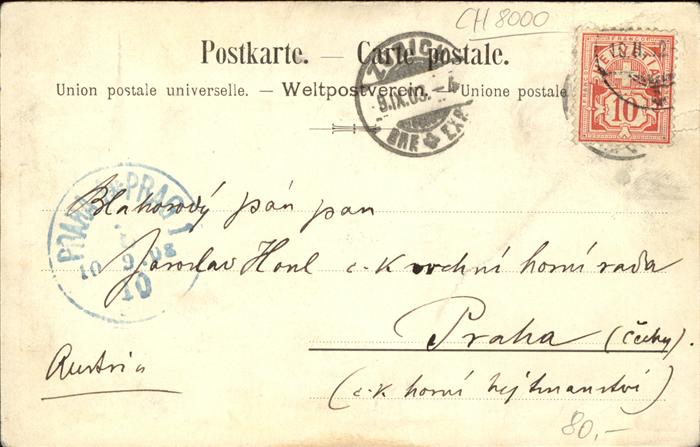 CH 8000
Postkarte. — Carte postale.
Union postale universelle. — Weltpostverein. — Unione postale
ZÜRICH
9.IX.03.-4
BRF EXP.
FRANCO
HELVETIA
10
PRAHA PRAG 1
10 9 08
10
Blahorodý pán pan
Jaroslav Honl c.k vrchní horní rada
Praha (Čechy).
Austria
(c.k horní hejtmanství)
80,-